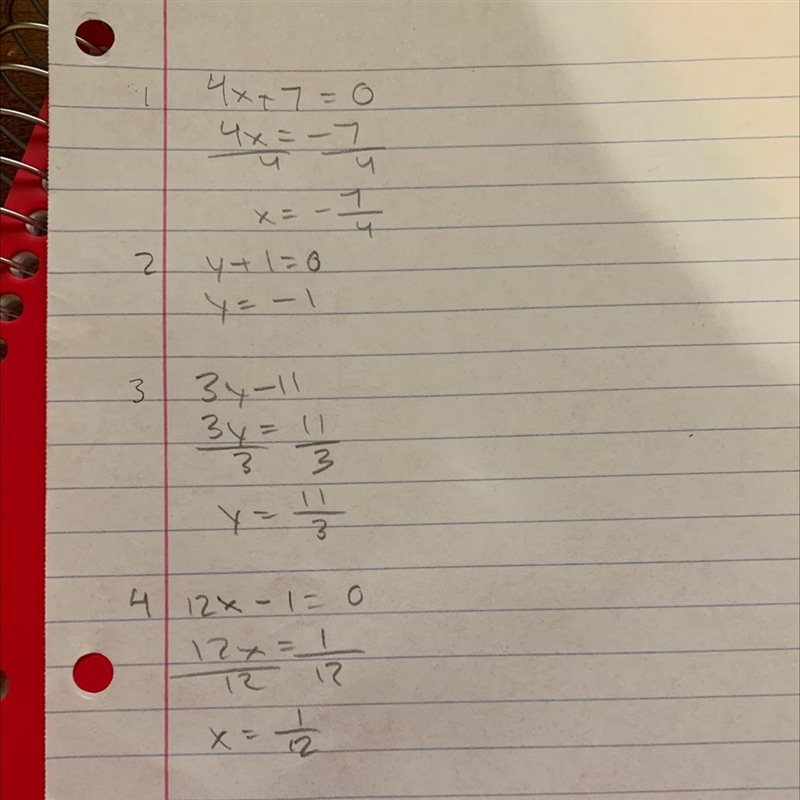 1 4x+7=0
4x/4 = -7/4
x = -7/4
2 y+1=0
y = -1
3 3y-11
3y/3 = 11/3
y = 11/3
4 12x-1=0
12x/12 = 1/12
x = 1/12